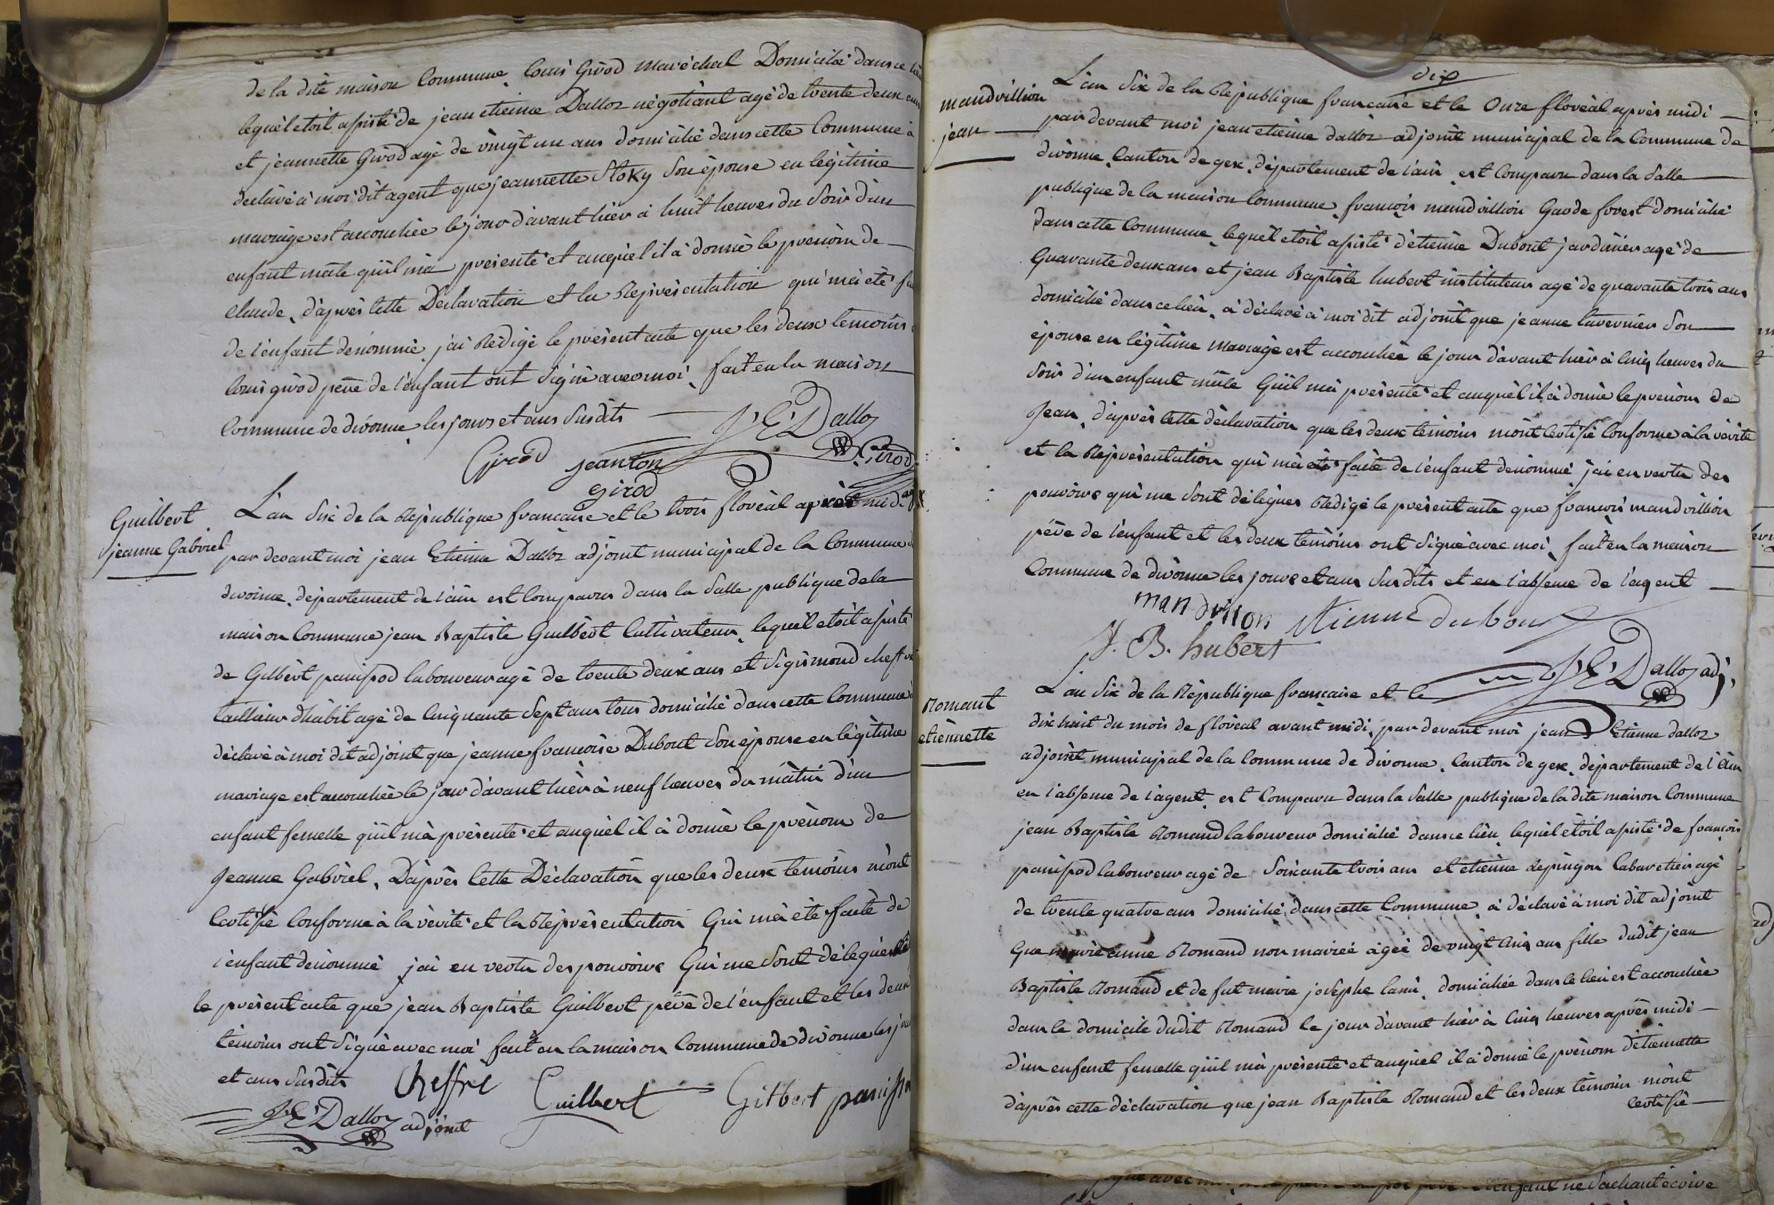 de la dite maison Commune Louis Girod maréchal Domicilié dans ce
lequel etoit assisté de jean etienne Dalloz négotiant agé de trente deux ans
et jeannette Girod agé de vingt un ans domicilié dans cette Commune à
déclaré à moi dit agent que jeannette Stoky Son épouse en légitime
mariage est accouchée le jour d'avant hier à huit heures du Soir d'un
enfant mâle qu'il m'a présenté et auquel il à donné le prenom de
claude, d'après cette Déclaration et la Représentation qui m'a été
de l'enfant dénommé j'ai Redigé le présent acte que les deux temoins
Louis girod père de l'enfant ont Signé avec moi, fait en la maison
Commune de divonne les jours et ans Susdits
J, E, Dalloz
Girod jeanton girod Girod
Guilbert
jeanne Gabriel
L'an Six de la République francaise et le trois floréal après midi
par devant moi jean Etienne Dalloz adjoint municipal de la Commune
divonne, département de l'ain est Comparu dans la Salle publique de la
maison Commune jean Baptiste Guilbert Cultivateur, lequel etoit assisté
de Gilbert panissod laboureur agé de trente deux ans et Sigismond cheffre
tailleur d'habit agé de Cinquante Sept ans tous domicilié dans cette Commune
déclaré à moi dit adjoint que jeanne francoise Dubout Son épouse en légitime
mariage est accouchée le jour d'avant hier à neuf heures du matin d'un
enfant femelle qu'il m'a présenté et auquel il à donné le prénom de
jeanne Gabriel, D'après Cette Déclaration que les deux temoins m'ont
Certifié Conforme à la vérité et la Représentation Qui m'a été faite de
l'enfant dénommé j'ai en vertu des pouvoirs Qui me Sont délégués
le présent acte que jean Baptiste Guilbert père de l'enfant et les deux
témoins ont Signé avec moi fait en la maison Commune de divonne les
et ans Susdits Cheffre Guilbert Gilbert
J, E, Dalloz adjoint
dix
mandrillion
jean
L'an Six de la République francaise et le Onze floréal après midi
par devant moi jean etienne dalloz adjoint municipal de la Commune de
divonne, Canton de gex, département de l'ain est Comparu dans la Salle
publique de la maison Commune, francois mandrillion Garde forest domicilié
dans cette Commune lequel etoit assisté d'etienne Dubout jardinier agé de
Quarante deux ans et jean Baptiste hubert instituteur agé de quarante trois ans
domicilié dans ce lieu, à déclaré à moi dit adjoint que jeanne tavernier Son
épouse en légitime mariage est accouchée le jour d'avant hier à Cinq heures du
Soir d'un enfant mâle Qu'il m'a présenté et auquel il à donné le prenom de
Jean, d'après Cette déclaration que les deux témoins m'ont Certifié Conforme à la vérité
et la Représentation qui m'a été faite de l'enfant dénommé j'ai en vertu des
pouvoirs qui me Sont délégués Redigé le présent acte que francois mandrillion
père de l'enfant et les deux témoins ont Signé avec moi, fait en la maison
Commune de divonne les jours et ans Susdits et en l'absence de l'agent
mandrilion Etienne dubout
J. B. hubert J, E, Dalloz adj,
Romant
etiennette
L'an Six de la République francaise et le
dix huit du mois de floréal avant midi, par devant moi jean Etienne dalloz
adjoint municipal de la Commune de divonne, Canton de gex, département de l'Ain
en l'absence de l'agent, est Comparu dans la Salle publique de la dite maison Commune
jean Baptiste Romand laboureur domicilié dans ce lieu, lequel étoit assisté de francois
panissod laboureur agé de Soixante trois ans et etienne depingon Cabaretier agé
de trente quatre ans domicilié dans cette Commune, à déclaré à moi dit adjoint
Que marie anne Romand non mariée agée de vingt Cinq ans fille dudit jean
Baptiste Romand et de fut marie josephe lami, domiciliée dans le lieu est accouchée
dans le domicile dudit Romand le jour d'avant hier à Cinq heures après midi
d'un enfant femelle qu'il m'a présenté et auquel il à donné le prénom d'étiennette
d'après cette déclaration que jean Baptiste Romand et les deux témoins m'ont
Certifié